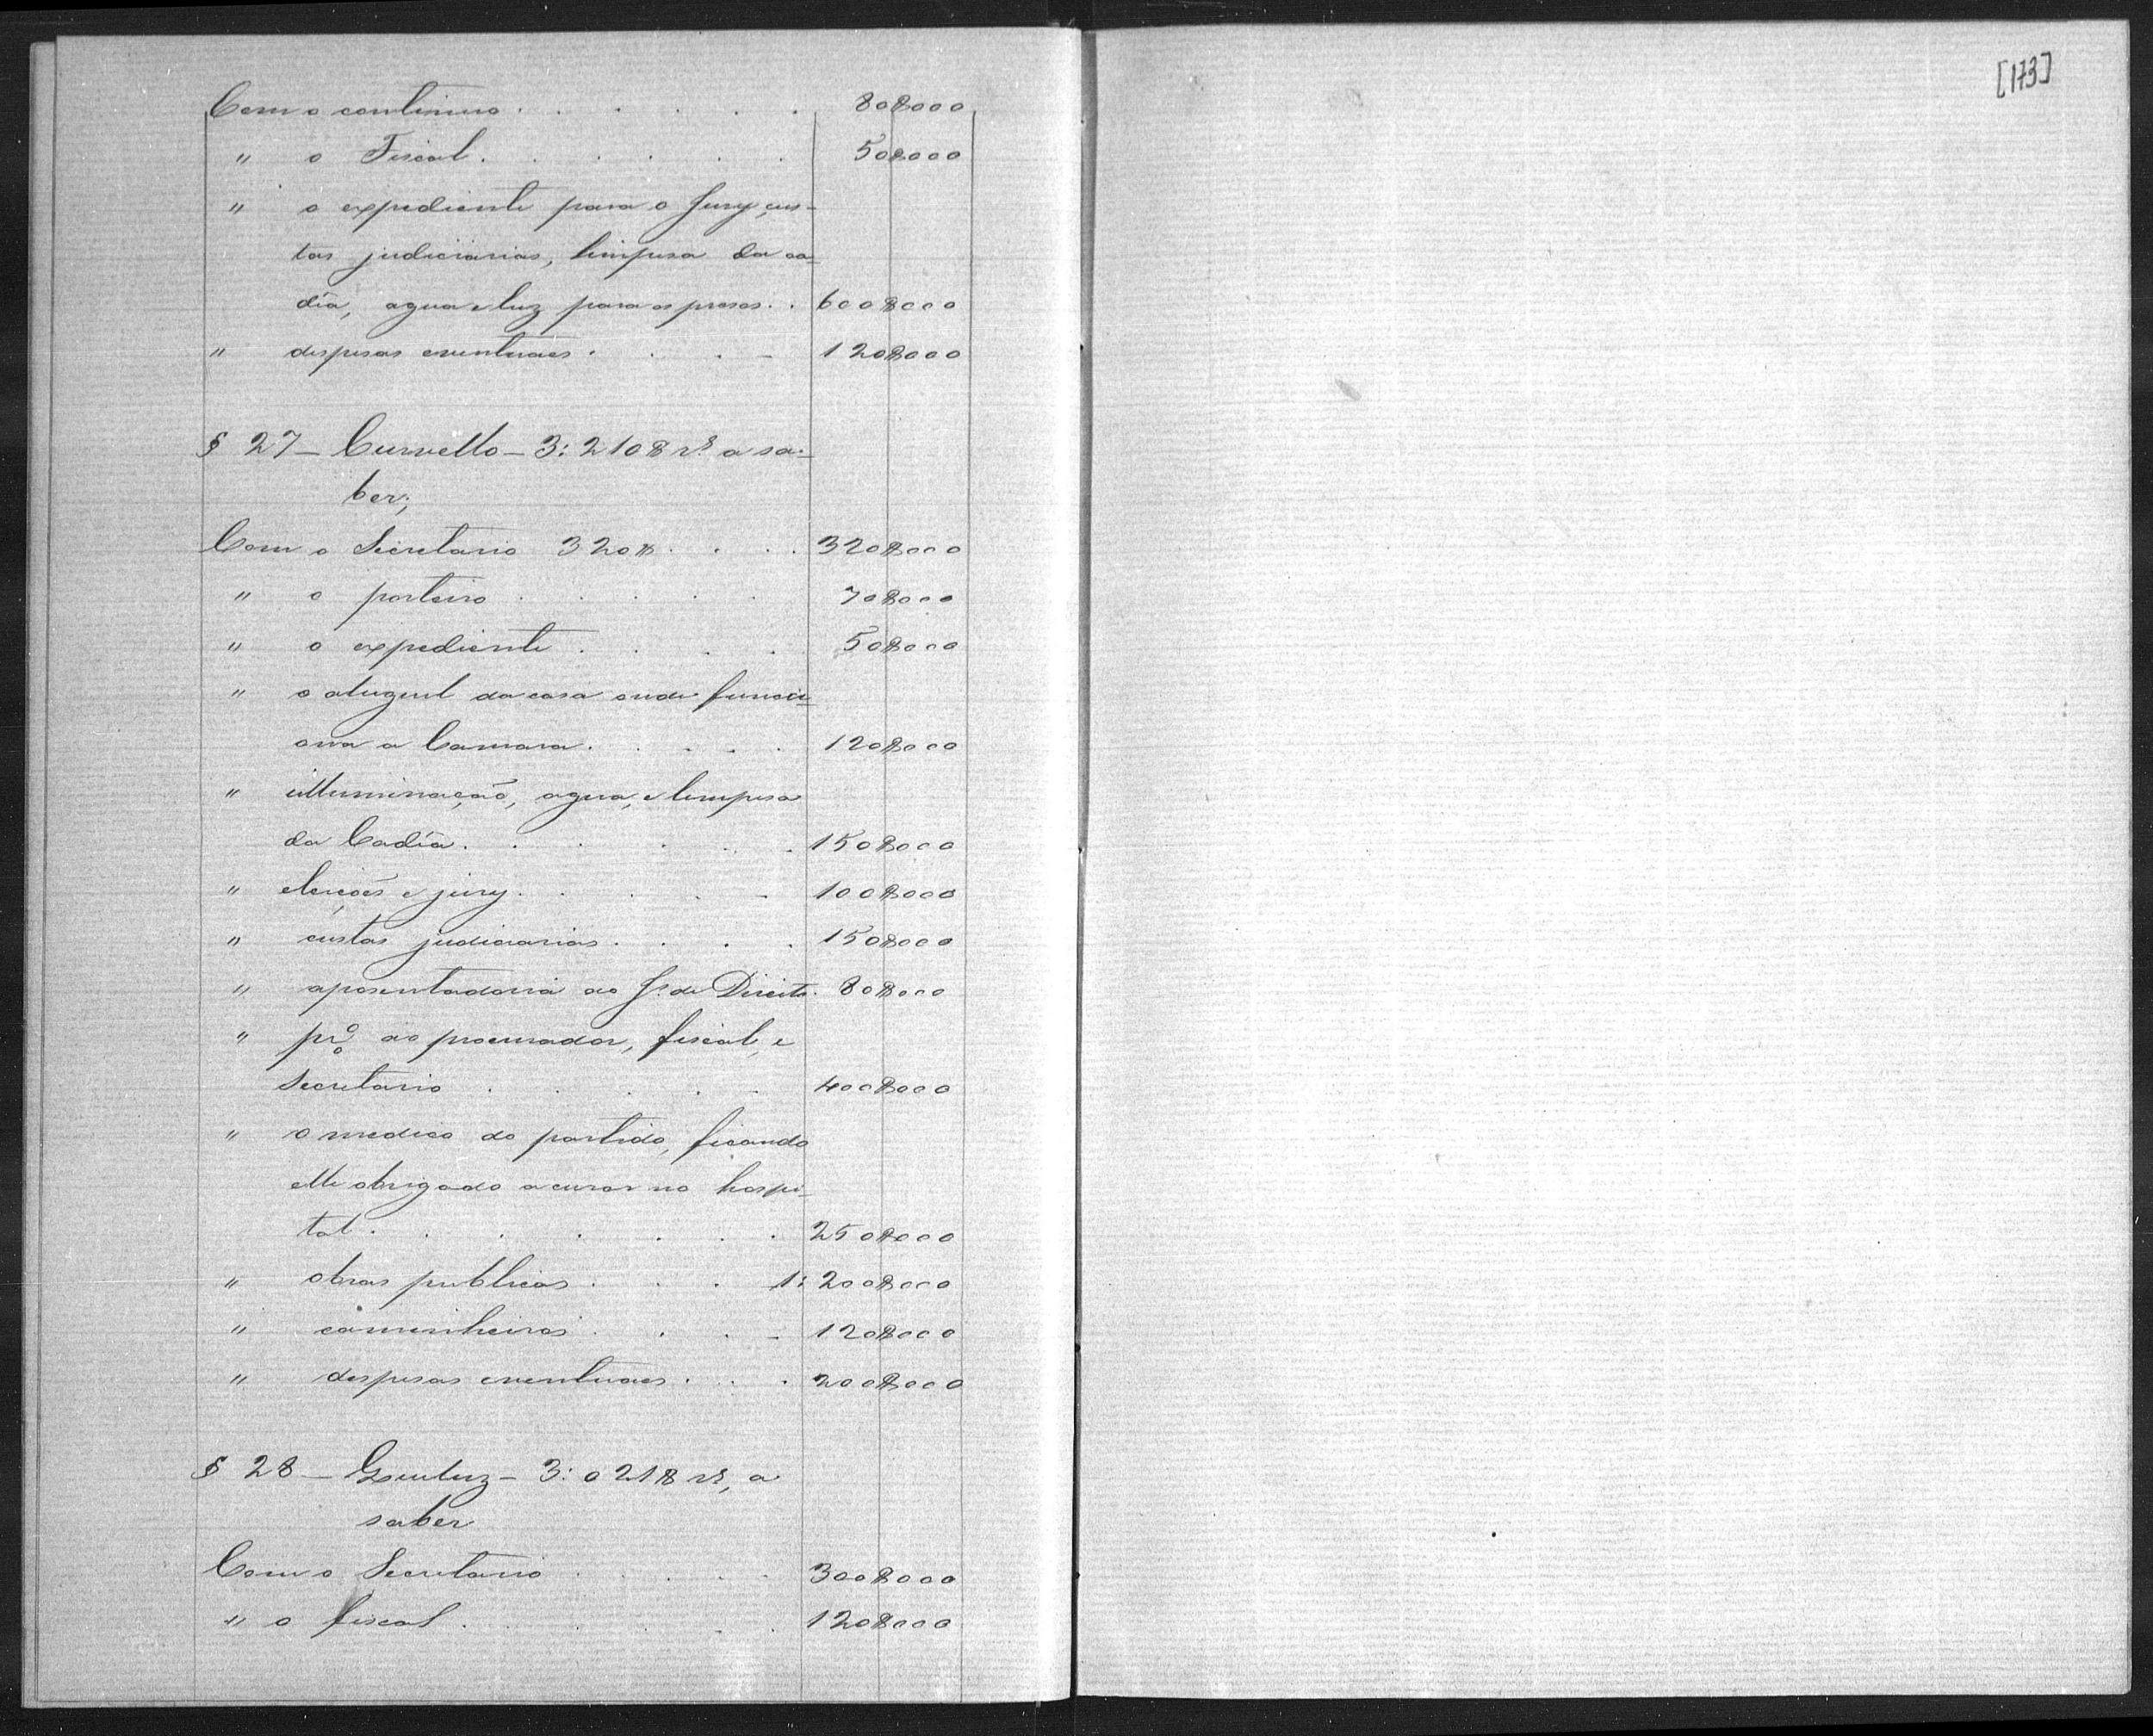 [173]
Com o continuo . . . . . . 80$000
" o Fiscal . . . . . . 50$000
" o expediente para o Jury, cus-
tas judiciarias, limpesa da ca-
dia, agua e luz para os presos . . 600$000
" despesas eventuaes . . . . 120$000
§ 27 – Curvello – 3:210$ rs. a sa-
ber;
Com o Secretario 320$ . . . . 320$000
" o porteiro . . . . . 70$000
" o expediente . . . . 50$000
" o aluguel da casa onde funcci-
ona a Camara . . . . . 120$000
" illuminação, agua, e limpesa
da Cadia . . . . . . 150$000
" eleições e jury . . . . . 100$000
" custas judiciarias . . . . 150$000
" aposentadoria ao J. de Direito . 80$000
" ao procurador, fiscal, e
secretario . . . . . 400$000
" o medico do partido, ficando
elle obrigado a curar no hospi-
tal . . . . . . . 250$000
" obras publicas . . . 1:200$000
" caminheiros . . . . 120$000
" despesas eventuaes . . . 200$000
§ 28 – 3:021$ rs, a
saber
Com o Secretario . . . . . 300$000
" o fiscal . . . . . . 120$000